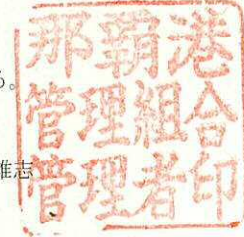 。
那覇港
管理組合
管理者印
志